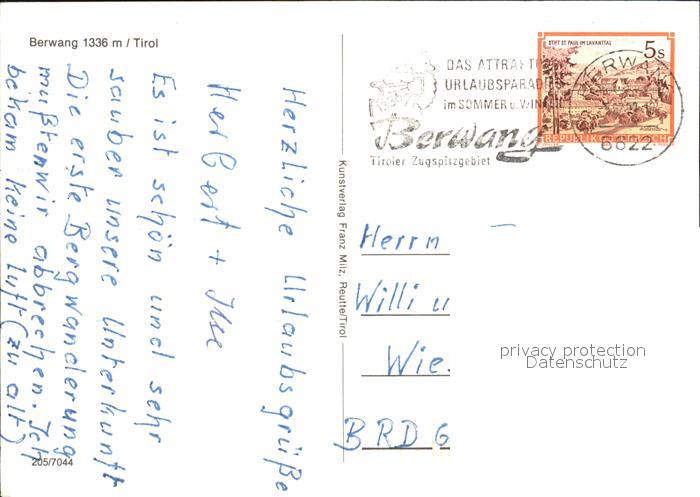 Berwang 1336 m / Tirol
Herzliche Urlaubsgrüße
Herbert + Ilse
Es ist schön und sehr
sauber unsere Unterkunft
Die erste Bergwanderung
mußten wir abbrechen. Ich
bekam keine Luft (zu alt)
205/7044
Kunstverlag Franz Milz, Reutte/Tirol
DAS ATTRAKTIVE
URLAUBSPARADIES
im SOMMER u. WINTER
Berwang
Tiroler Zugspitzgebiet
STIFT ST. PAUL IM LAVANTTAL
5s
REPUBLIK ÖSTERREICH
BERWANG
6622
Herrn
Willi u
Wie.
BRD 6
privacy protection
Datenschutz